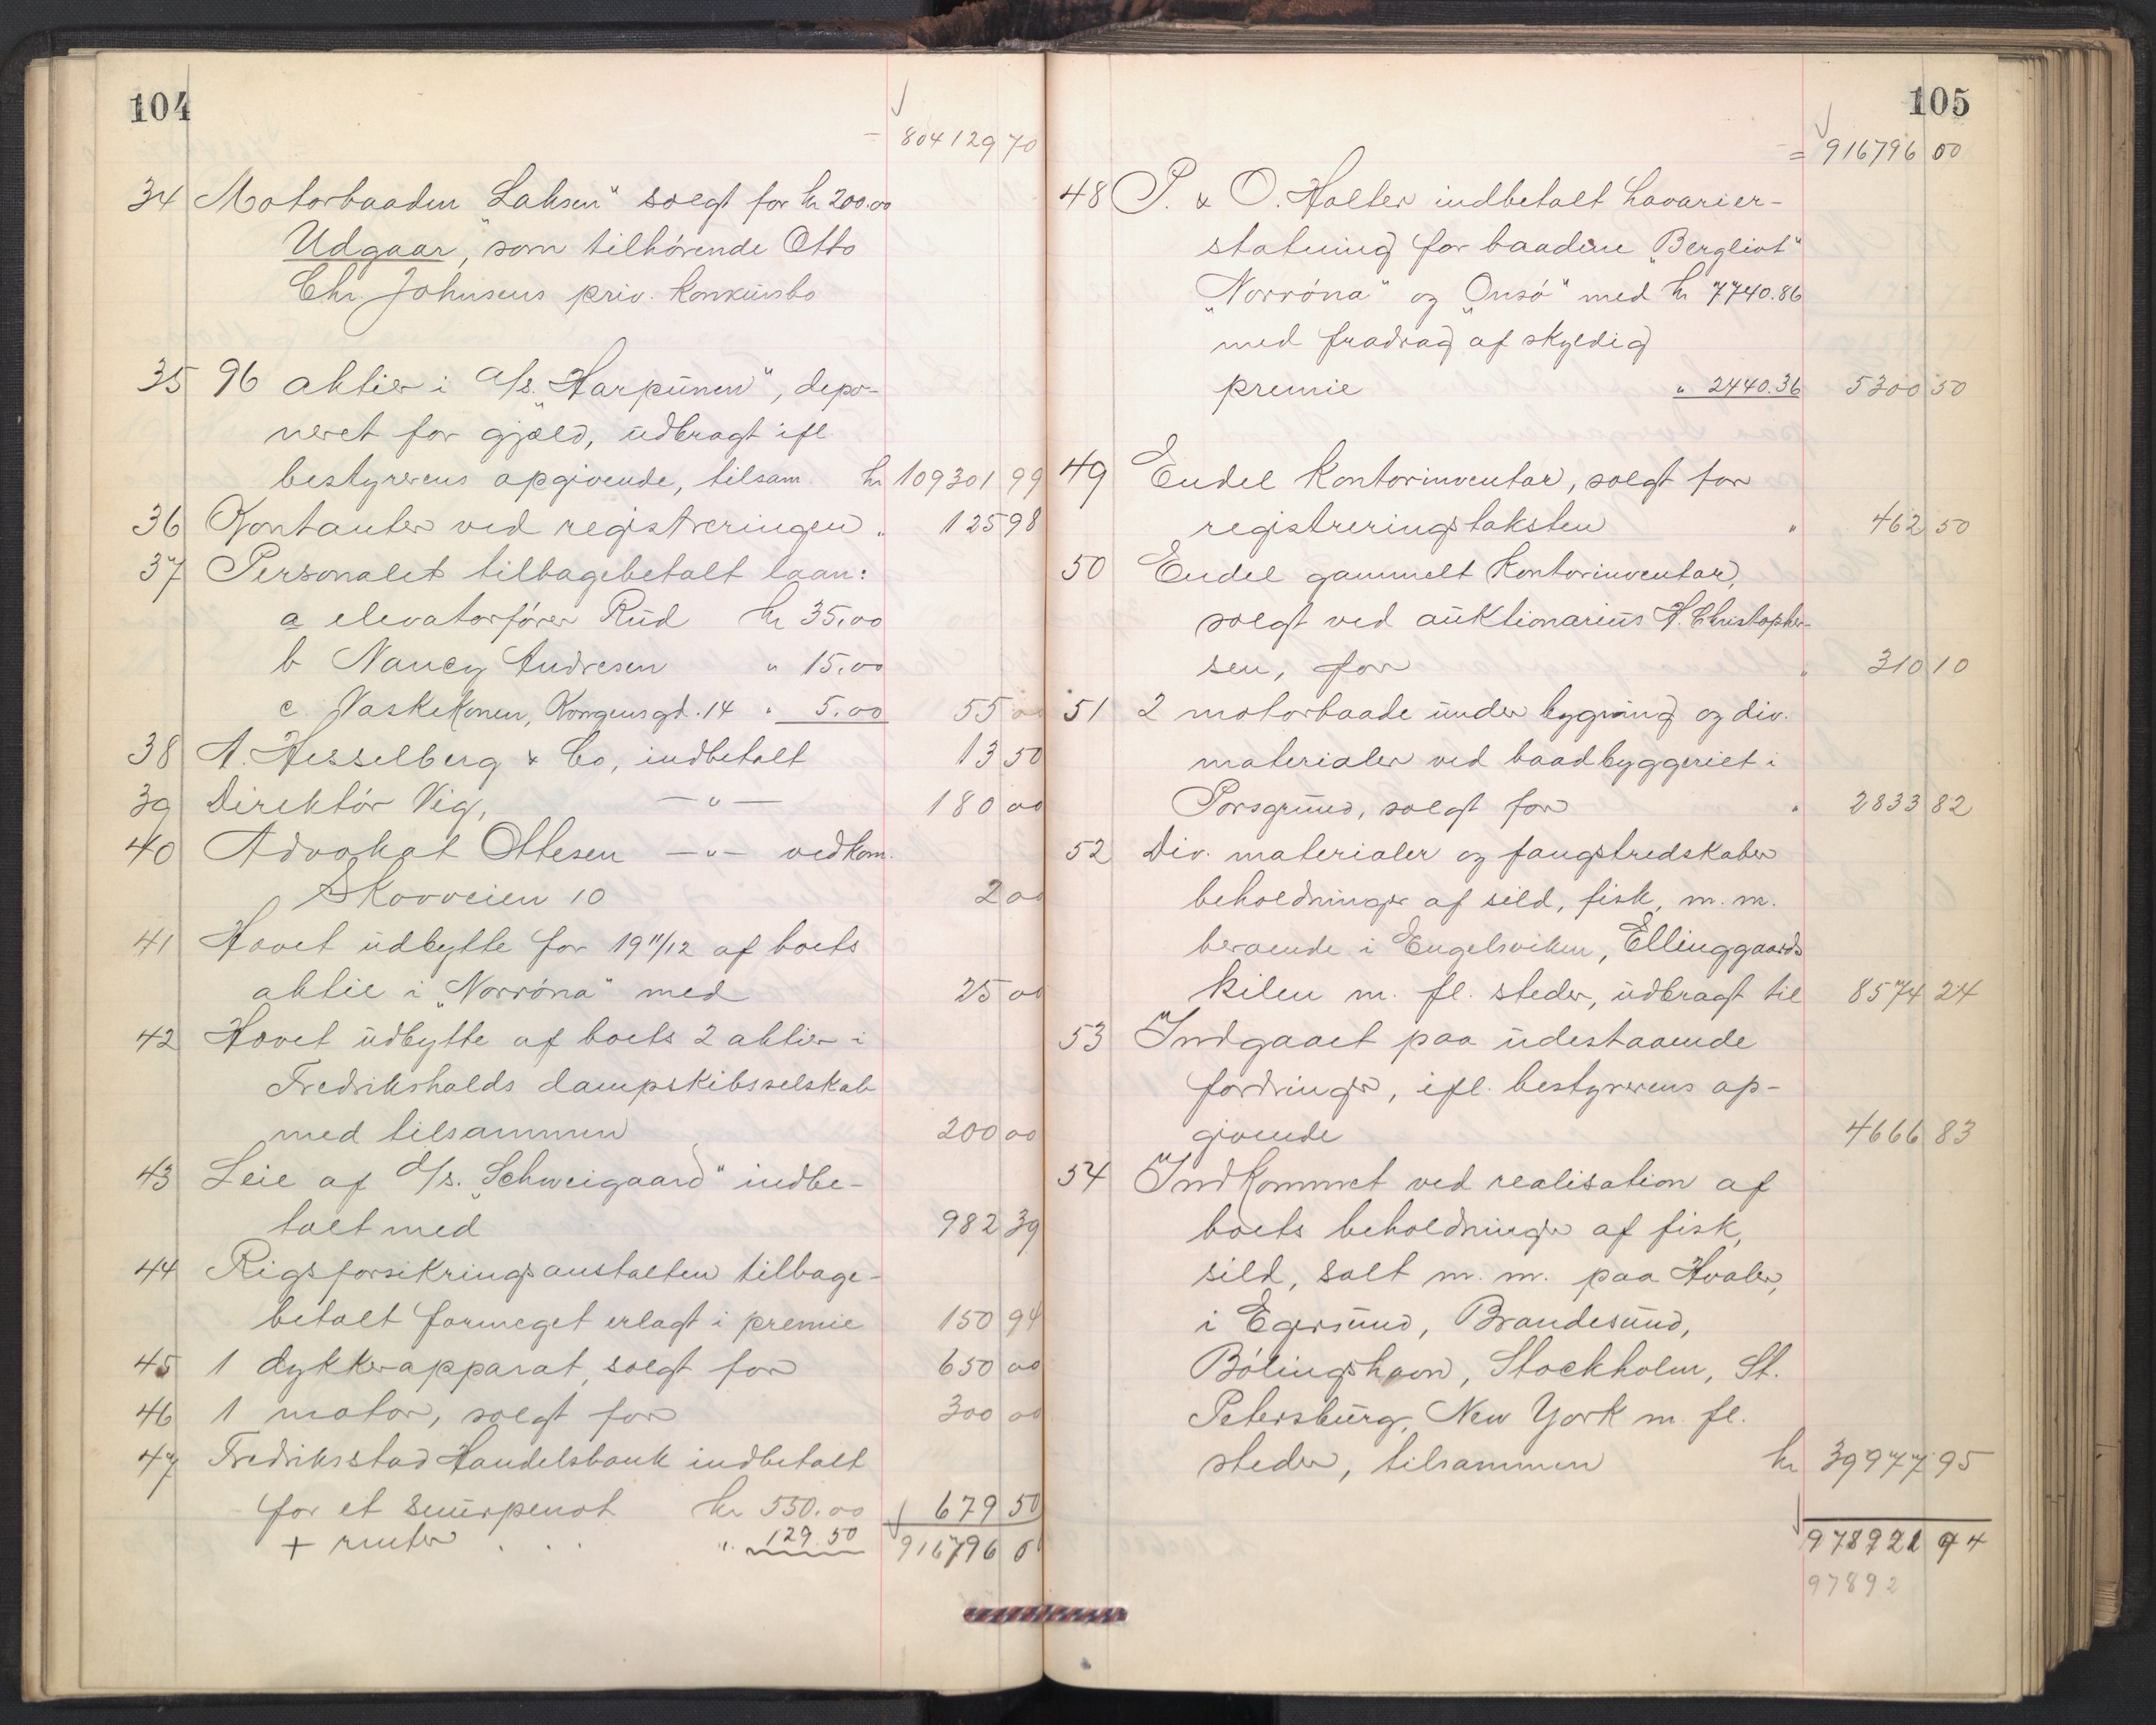 104
804129 70
34 Motorbaaden „Laksen" solgt for kr 200.00
Udgaar, som tilhørende Otto
Chr Johnsens priv. konkursbo
35 96 aktier i A/s. „Harpunen", depo-
neret for gjæld, udbragt ifl.
bestyrerens opgivende, tilsam. kr 109301 99
36 Kontanter ved registreringen " 125 98
37 Personalet tilbagebetalt laan:
a elevatorfører Rud kr 35.00
b Nancy Andresen " 15.00
c Vaskekonen, Kongensgd. 14 " 5.00 55 00
38 A. Hesselberg & Co, indbetalt 13 50
39 Direktør Vig, —"— 180 00
40 Advokat Ottesen —"— vedkom.
Skovveien 10 2 00
41 Hævet udbytte for 1911/12 af boets
aktie i „Norrøna" med 25 00
42 Hævet udbytte af boets 2 aktier i
Fredrikshalds dampskibsselskab
med tilsammen 200 00
43 Leie af d/s. „Schweigaard" indbe-
talt med 982 39
44 Rigsforsikringsanstalten tilbage-
betalt formeget erlagt i premie 150 94
45 1 dykkerapparat, solgt for 650 00
46 1 motor, solgt for 300 00
47 Fredriksstad Handelsbank indbetalt
for et snurpenot kr 550.00 679 50
+ renter . . . " 129.50 916796 0
105
= 916796 00
48 P. & O. Halter indbetalt havarier-
statning for baadene „Bergliot"
„Norrøna" og „Onsø" med kr 7740.86
med fradrag af skyldig
premie " 2440.36 5300 50
49 Endel kontorinventar, solgt for
registreringstaksten " 462 50
50 Endel gammelt kontorinventar,
solgt ved auktionarius H. Christopher-
sen, for " 310 10
51 2 motorbaade under bygning og div.
materialer ved baadbyggeriet i
Porsgrund, solgt for " 2833 82
52 Div. materialer og fangstredskaber
beholdninger af sild, fisk, m. m.
beroende i Engelsviken, Ellinggaards
kilen m. fl. steder, udbragt til 8574 24
53 Indgaaet paa udestaaende
fordringer, ifl. bestyrerens op-
givende 4666 83
54 Indkommet ved realisation af
boets beholdninger af fisk,
sild, salt m. m. paa Hvaler,
i Egersund, Brandesund,
Bølingshavn, Stockholm, St.
Petersburg, New York m. fl.
steder, tilsammen kr 39977 95
978921 94
97892